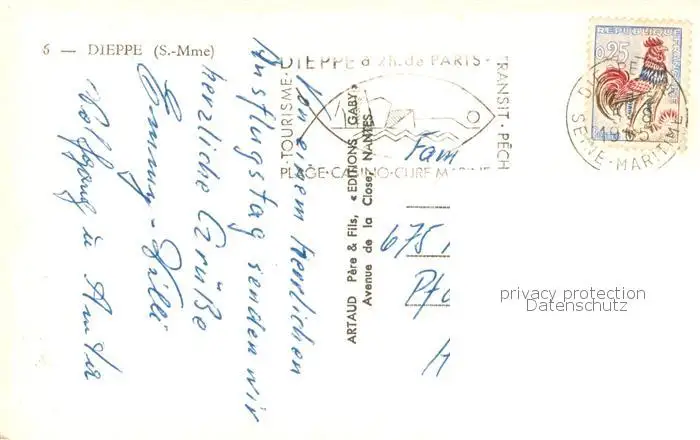 6 — DIEPPE (S.-Mme)
DIEPPE à 2h. de PARIS -
TOURISME -
TRANSIT - PÊCH
PLAGE - CASINO - CURE MARINE
REPUBLIQUE FRANÇAISE
0,25
DIEPPE
SEINE-MARITIME
Von einem herrlichen
Ausflugstag senden wir
herzliche Grüße
Emmy - Willi
Wolfgang u. Anita
ARTAUD Père & Fils, « EDITIONS GABY »
Avenue de la Close, NANTES
Fam
675
Pfo
H
privacy protection
Datenschutz